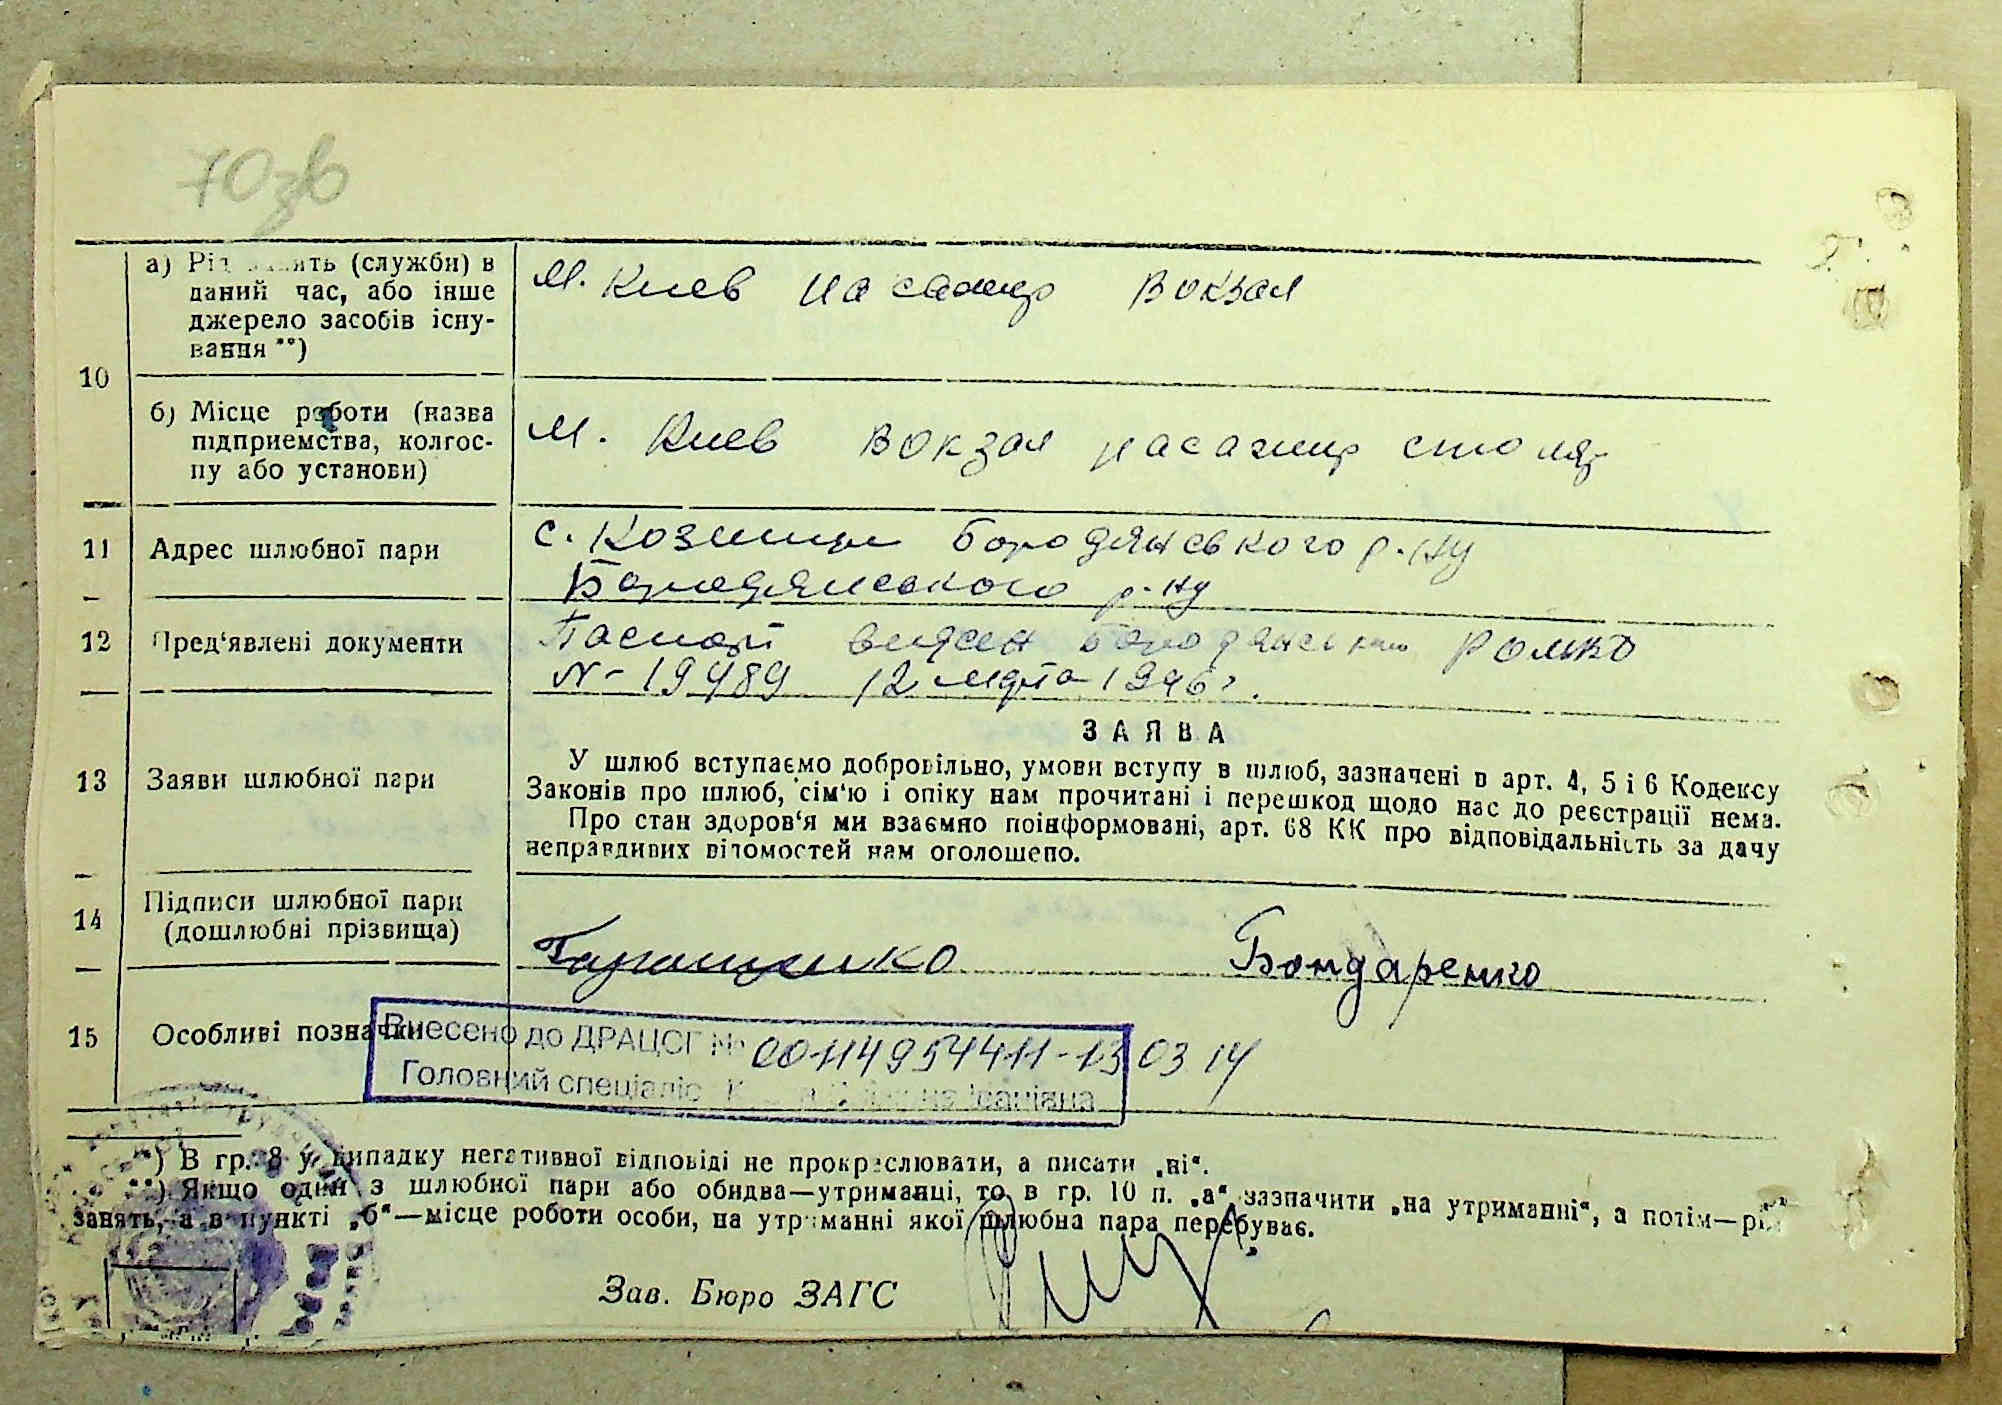 70зв
а) Рід занять (служби) в
даний час, або інше
джерело засобів існу-
вання **)
м. Киев пасажир вокзал
10
б) Місце роботи (назва
підприємства, колгос-
пу або установи)
м. Киев вокзал пасажир столяр
11 Адрес шлюбної пари
с. Козинци Бородянського р-ну
Бородянського р-ну
12 Пред'явлені документи
Паспорт
N- 19489 12 марта 1946 г.
ЗАЯВА
13 Заяви шлюбної пари
У шлюб вступаємо добровільно, умови вступу в шлюб, зазначені в арт. 4, 5 і 6 Кодексу
Законів про шлюб, сім'ю і опіку нам прочитані і перешкод щодо нас до реєстрації нема.
Про стан здоров'я ми взаємно поінформовані, арт. 68 КК про відповідальність за дачу
неправдивих відомостей нам оголошено.
14 Підписи шлюбної пари
(дошлюбні прізвища)
Бондаренко
15 Особливі позначки
Внесено до ДРАЦСГ № 00114954411-13 03 14
Головний спеціаліст
*) В гр. 8 у випадку негативної відповіді не прокреслювати, а писати „ні“.
**) Якщо один з шлюбної пари або обидва—утриманці, то в гр. 10 п. „а“ зазначити „на утриманні“, а потім—рід
занять, а в пункті „б“—місце роботи особи, на утриманні якої шлюбна пара перебуває.
Зав. Бюро ЗАГС